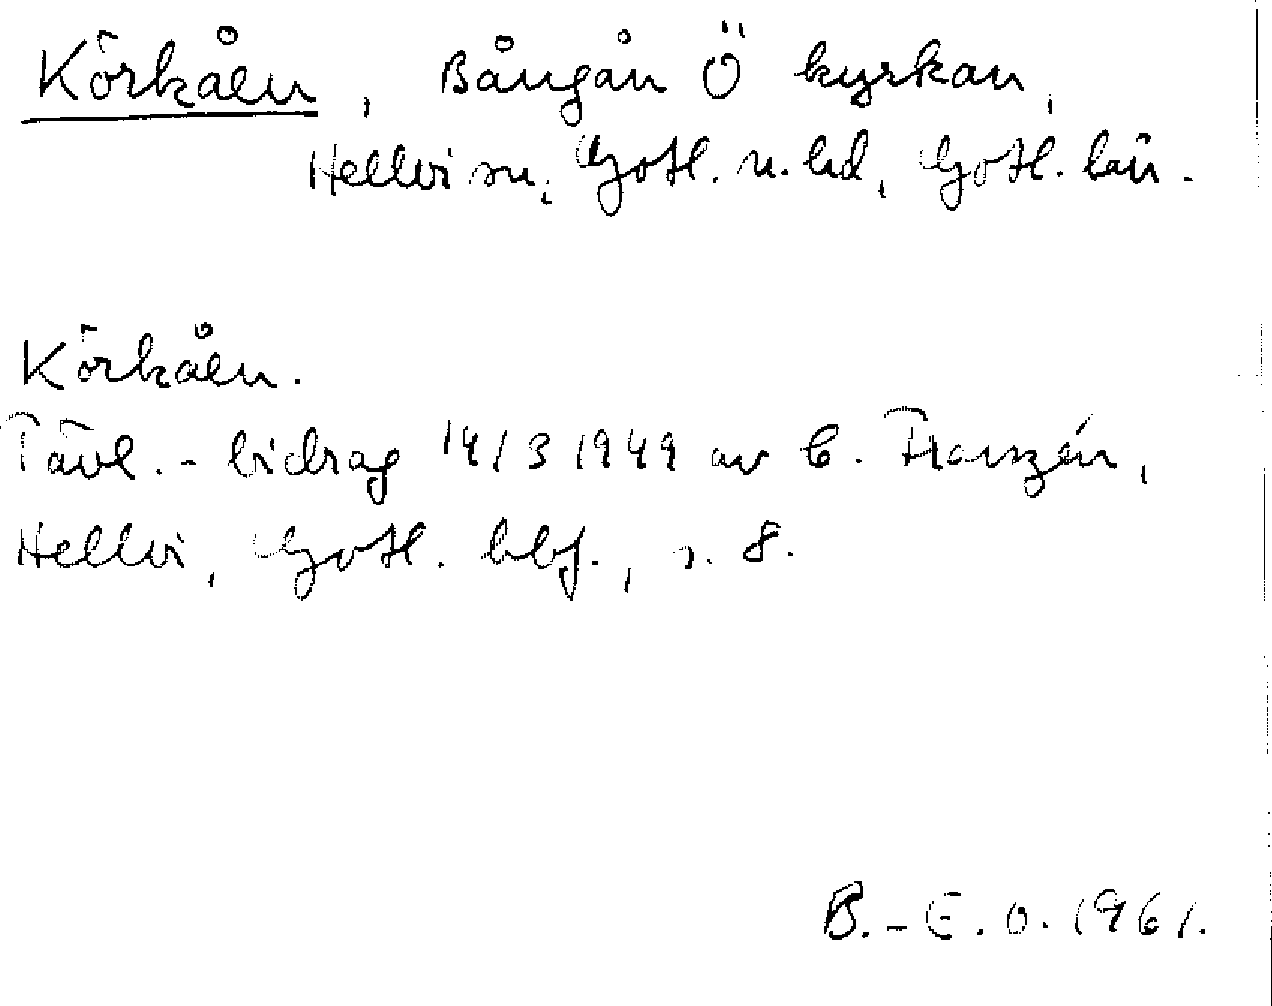 Körkåen, Bångån Ö kyrkan,
Hellvi sn, Gotl. n. hd, Gotl. län.
Körkåen.
Tävl.-bidrag 14/3 1949 av C. Franzén,
Hellvi, Gotl. bbf., s. 8.
B.-E. O. 1961.